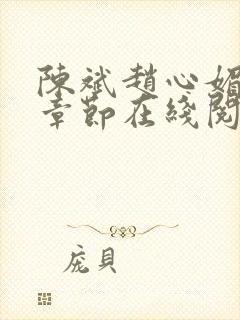 陳斌趙心媚
章節在綫閱
庞貝